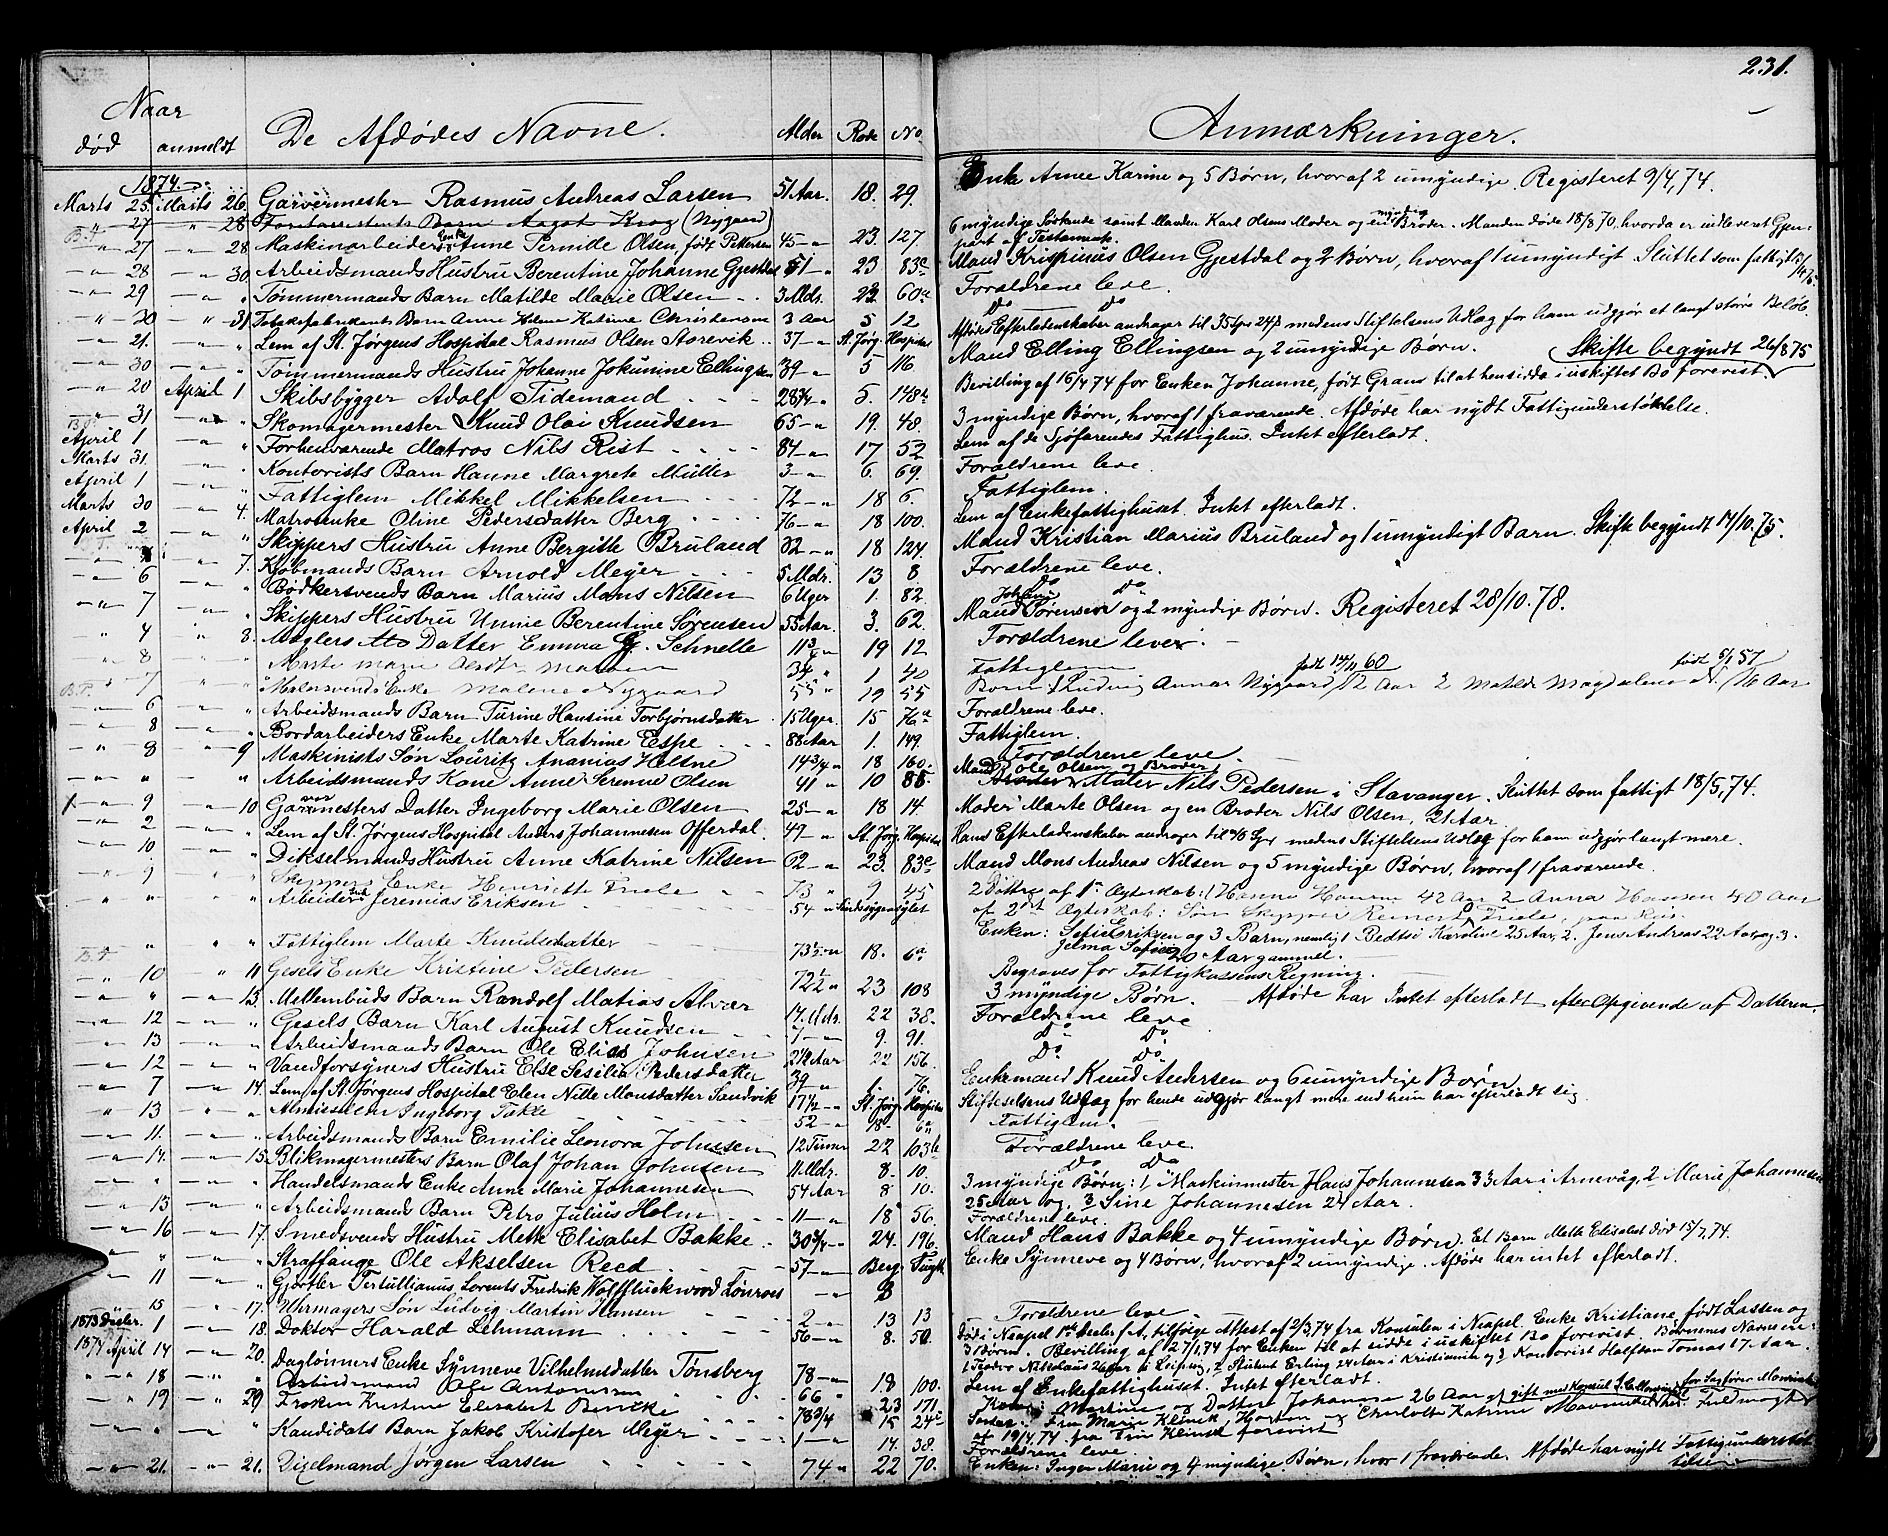 231.
Naar
død anmeldt De Afdødes Navne. Alder Rode No Anmærkninger.
1874.
Marts 25. Marts 26. Garvermester Rasmus Andreas Larsen 51 Aar. 18. 29. Enke Anne Karine og 5 Børn, hvoraf 2 umyndige. Registeret 9/4, 74.
" 27 " 28 Barn Aagot Krog (Nygaard)
B.F. " 27 " 28 Maskinarbeider Enke Anne Pernille Olsen født Pettersen 45 " 23. 127. 6 myndige Søskende samt Manden Karl Olsens Moder og en myndig Broder. Manden døde 18/8 70, hvorda er indleveret Gjenpart af Testamente.
" 28 " 30. Arbeidsmands Hustru Berentine Johanne Gjestdal 51 " 23 83c Mand Krispinus Olsen Gjestdal og 2 Børn, hvoraf 1 umyndigt. Sluttet som fattigt
" 29 " " Tømmermands Barn Matilde Marie Olsen 3 Mdr. 22 60a Forældrene leve.
" 30 " 31 Tobaksfabrikants Barn Anne Helene Katrine Christensen 3 Aar 5 12 Do Do
" 21. " " Lem af St. Jørgens Hospital Rasmus Olsen Storevik 37 " St. Jørg. Hospital Afdødes Efterladenskaber andrager til 35 24 medens Stiftelsens Udlæg for ham udgjør et langt større Beløb.
" 30 " " Tømmermands Hustru Johanne Jokumine Ellingsen 39 " 5 116 Mand Elling Ellingsen og 2 umyndige Børn. Skifte begyndt 26/8 75
" 20 April 1 Skibsbygger Adolf Tidemand 28 3/4 " 5. 148a Bevilling af 16/4 74 for Enken Johanne, født Grans til at hensidde i uskiftet Bo forevist.
" 31 " " Skomagermester Knud Olai Knudsen 65 " 19. 48. 3 myndige Børn, hvoraf 1 fraværende. Afdøde har nydt Fattigunderstøttelse.
April 1 " " Forhenværende Matros Nils Rist 84 " 17 52 Lem af de Sjøfarendes Fattighus. Intet efterladt.
Marts 31. " " Kontorists Barn Hanne Margrete Müller 3 " 6. 69. Forældrene leve.
April 1 " " Fattiglem Mikkel Mikkelsen 72 " 18 6. Fattiglem.
Marts 30 " 4. Matrosenke Oline Pedersdatter Berg 76 " 18 100. Lem af Enkefattighuset. Intet efterladt.
April 2 " " Skippers Hustru Anne Bergitte Bruland 32 " 18 124. Mand Kristian Marius Bruland og 1 umyndigt Barn. Skifte begyndt 14/10. 75.
" " 7. Kjøbmands Barn Arnold Meyer 5 Mdr. 13 8. Forældrene leve.
" 6 " " Bødkersvends Barn Marius Mons Nilsen 6 Uger 1. 82. Do Do
" 7 " " Skippers Hustru Unnie Berentine Sørensen 55 Aar. 3. 62. Mand Johannes Sørensen og 2 myndige Børn. Registeret 28/10. 78.
" 4 " 8. Møglers Datter Emma G. Schnelle 11 3/4 " 19 12 Forældrene lever.
" 8 " " Marte Marie Madsen 34 " 1 40 Fattiglem
B.F. " 7 " " Malersvends Enke Malene Nygaard 55 " 19 55 Børn 1 Ludvig Annar Nygaard, født 14/11 60 12 Aar 2 Matilde Magdalene N. født 5/1 57 16 Aar
" 6 " " Arbeidsmands Barn Turine Hansine Torbjørnsdatter 15 Uger. 15 76a Forældrene leve.
" 8 " " Bordarbeiders Enke Marte Katrine Espe 88 Aar 1. 149. Fattiglem.
" 8 " 9 Maskinists Søn Lauritz Ananias Heltne 14 3/4 " 18 160. Forældrene leve.
" " " " Arbeidsmands Kone Anne Serenne Olsen 41 " 10 85. Mand Ole Olsen og Broder Maler Nils Pedersen i Stavanger. Sluttet som fattigt 18/5, 74.
" 9 " 10 Garvermesters Datter Ingeborg Marie Olsen 25 " 18 14. Moder Marte Olsen og en Broder Nils Olsen, 21 Aar.
" 2 " " Lem af St. Jørgens Hospital Anders Johannesen Offerdal. 47 " St. Jørg. Hospital Hans Efterladenskaber andrager til medens Stiftelsens Udlæg for ham udgjør langt mere.
" 10 " " Dikselmands Hustru Anne Katrine Nilsen 62 " 23. 83c Mand Mons Andreas Nilsen og 5 myndige Børn, hvoraf 1 fraværende.
" 9 " " Skippers Enke Henriette Friele 73 " 9 45 2 Døttre af 1ste Ægteskab: 1 Hanna Hansen 42 Aar 2 Anna Hansen 40 Aar af 2det Ægteskab: Søn Skipper Reinert Friele, paa Reis
" " " " Arbeider Jeremias Eriksen 54 " Sindssygeasylet Enken: Sofie Eriksen og 3 Barn, nemlig 1 Bedtsi Karoline 25 Aar, 2. Jens Andreas 22 Aar og 3. Jelma Sofie 20 Aar gammel.
" " " " Fattiglem Marte Knudsdatter 73 1/2 " 18. 6a Begraves for Fattigkassens Regning.
B.F. " 10 " 11 Gesels Enke Kristine Pedersen 72 1/2 " 23 108 3 myndige Børn. Afdøde har Intet efterladt efter Opgivende af Datteren.
" " " 13. Mellembuds Barn Randolf Matias Alvær 14. Mdr. 22 38. Forældrene leve
" 12 " " Gesels Barn Karl August Knudsen 7 " 9. 91. Do Do
" 13 " " Arbeidsmands Barn Ole Elias Johnsen 2 1/2 Aar 22 156. Do Do
" 12 " " Vandforsyners Hustru Else Sesilia Pedersdatter 39 " 1. 76. Enkemand Knud Andersen og 6 umyndige Børn
" 7 " 14. Lem af St. Jørgens Hospital Elen Nille Monsdatter Sandvik 17 1/2 " St. Jørg. Hospital Stiftelsens Udlæg for hende udgjør langt mere end hun har efterladt sig.
" 13 " " Almisselem Ingeborg Takle 52 " 18 6a Fattiglem.
" 11. " " Arbeidsmands Barn Emilie Leonora Johnsen 12 Timer 22 103b Forældrene leve.
" 14. " 15. Blikmagermesters Barn Olaf Johan Johnsen 11 Mdr. 8. 10. Do Do
" " " " Handelsmands Enke Anne Marie Johannesen 54 Aar 8 10. 3 myndige Børn: 1 Maskinmester Hans Johannesen 33 Aar i Arnevåg, 2 Marie Johannesen 25 Aar og, 3 Sine Johannesen 24 Aar.
" 13 " " Arbeidsmands Barn Petro Julius Holm 11 " 18 56. Forældrene leve.
" 16 " 17. Smedsvends Hustru Mette Elisabet Bakke 30 3/4 " 24. 196. Mand Hans Bakke og 4 umyndige Børn. Et Barn Mette Elisabet død 15/7, 74.
" " " " Straffange Ole Akselsen Reed 57 " Berg. Enke Synneve og 4 Børn, hvoraf 2 umyndige. Afdøde har intet efterladt.
" 11 " " Gjørtler Tertullianus Lorents Fredrik Lønroes " 8
15 " 17. Uhrmagers Søn Ludvig Martin Hansen 2 " 13 13 Forældrene leve
1873 Decbr. 1 " 18. Doktor Harald Lehmann 56 " 8. 50. Død i Neapel 1ste Decbr f.A. tilfølge Attest af 2/3, 74 fra Konsulen i Neapel. Enke Kristiane, født Lassen og 3 Børn. Bevilling af 27/1, 74 for Enken til at sidde i uskiftet Bo forevist. Børnenes Navne ere: 1. Teodor Nikolaus 26 Aar i Leipzig, 2 Student Erling 24 Aar i Kristiania og 3 Kontorist Halfdan Tomas 17 Aar.
1874 April 14 " 20. Daglønners Enke Synneve Vilhelmsdatter Tønsberg 78 " 18 100. Lem af Enkefattighuset. Intet efterladt.
" 18 " " Arbeidsmand Ole Antonisen 66 " 23 171. Kone: Martine og Datter Johanne 26 Aar
" 19 " 29 Frøken Kristine Elisabet Bencke 78 3/4 15 24c Søstre: Fru Marie Klinck, Horten og Charlotte Katrine gift med Konsul Mowinckel her. Fuldmagt for Sagfører af 19/4. 74. fra Fru Klinck forevist
" " " " Kandidats Barn Jakob Kristofer Meyer 1 " 14. 38. Forældrene leve.
" 21. " 21. Dixelmand Jørgen Larsen 74 " 22 70. Enken: Inger Marie og 4 myndige Børn, hvor 1 fraværende. Afdøde har nydt Fattigunderstøttelse